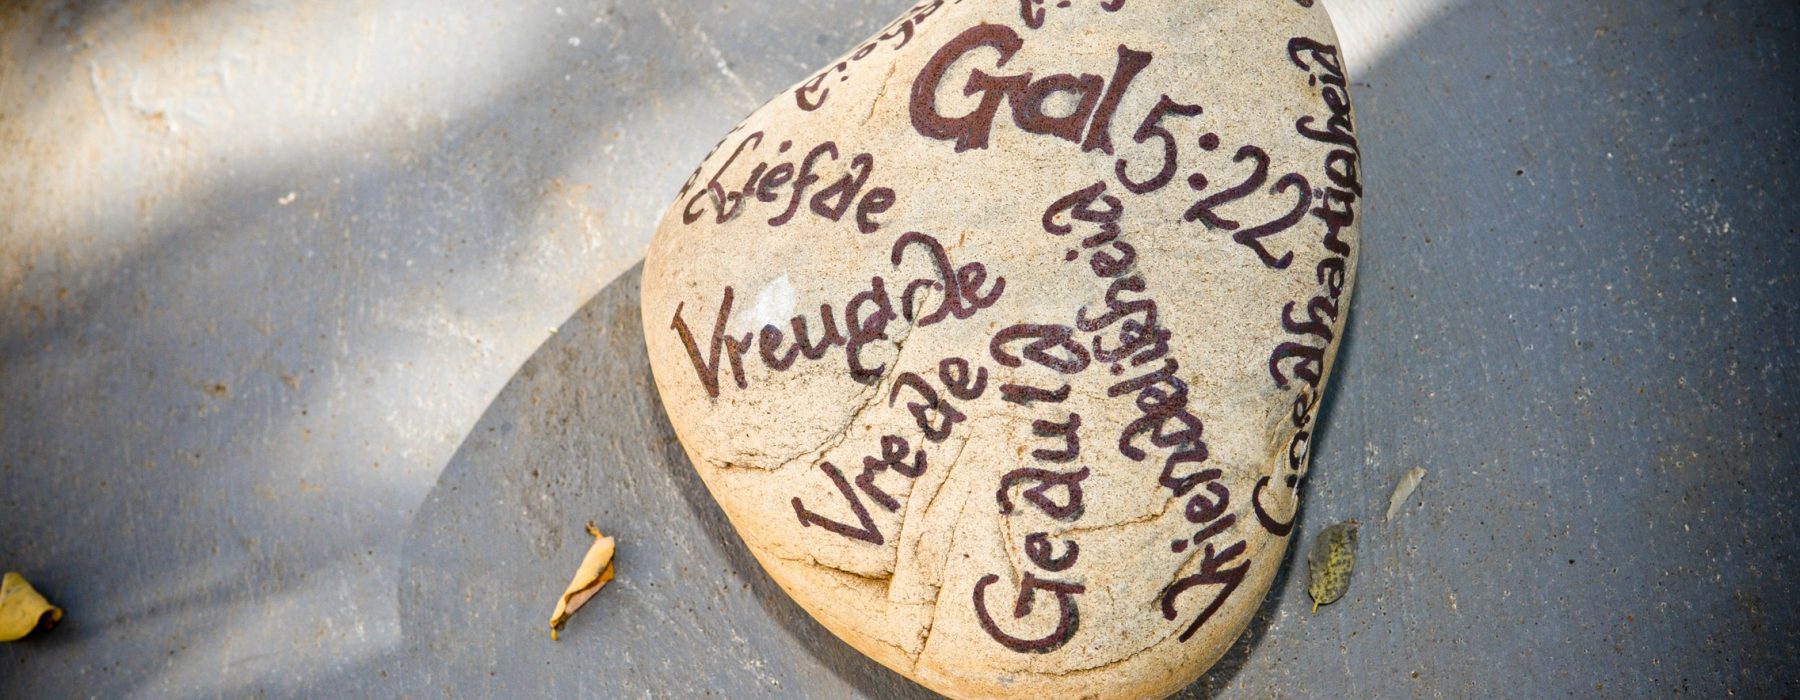 Gal 5:22
Liefde
Vreugde
Vrede
Geduld
Vriendelikheid
Goedhartigheid